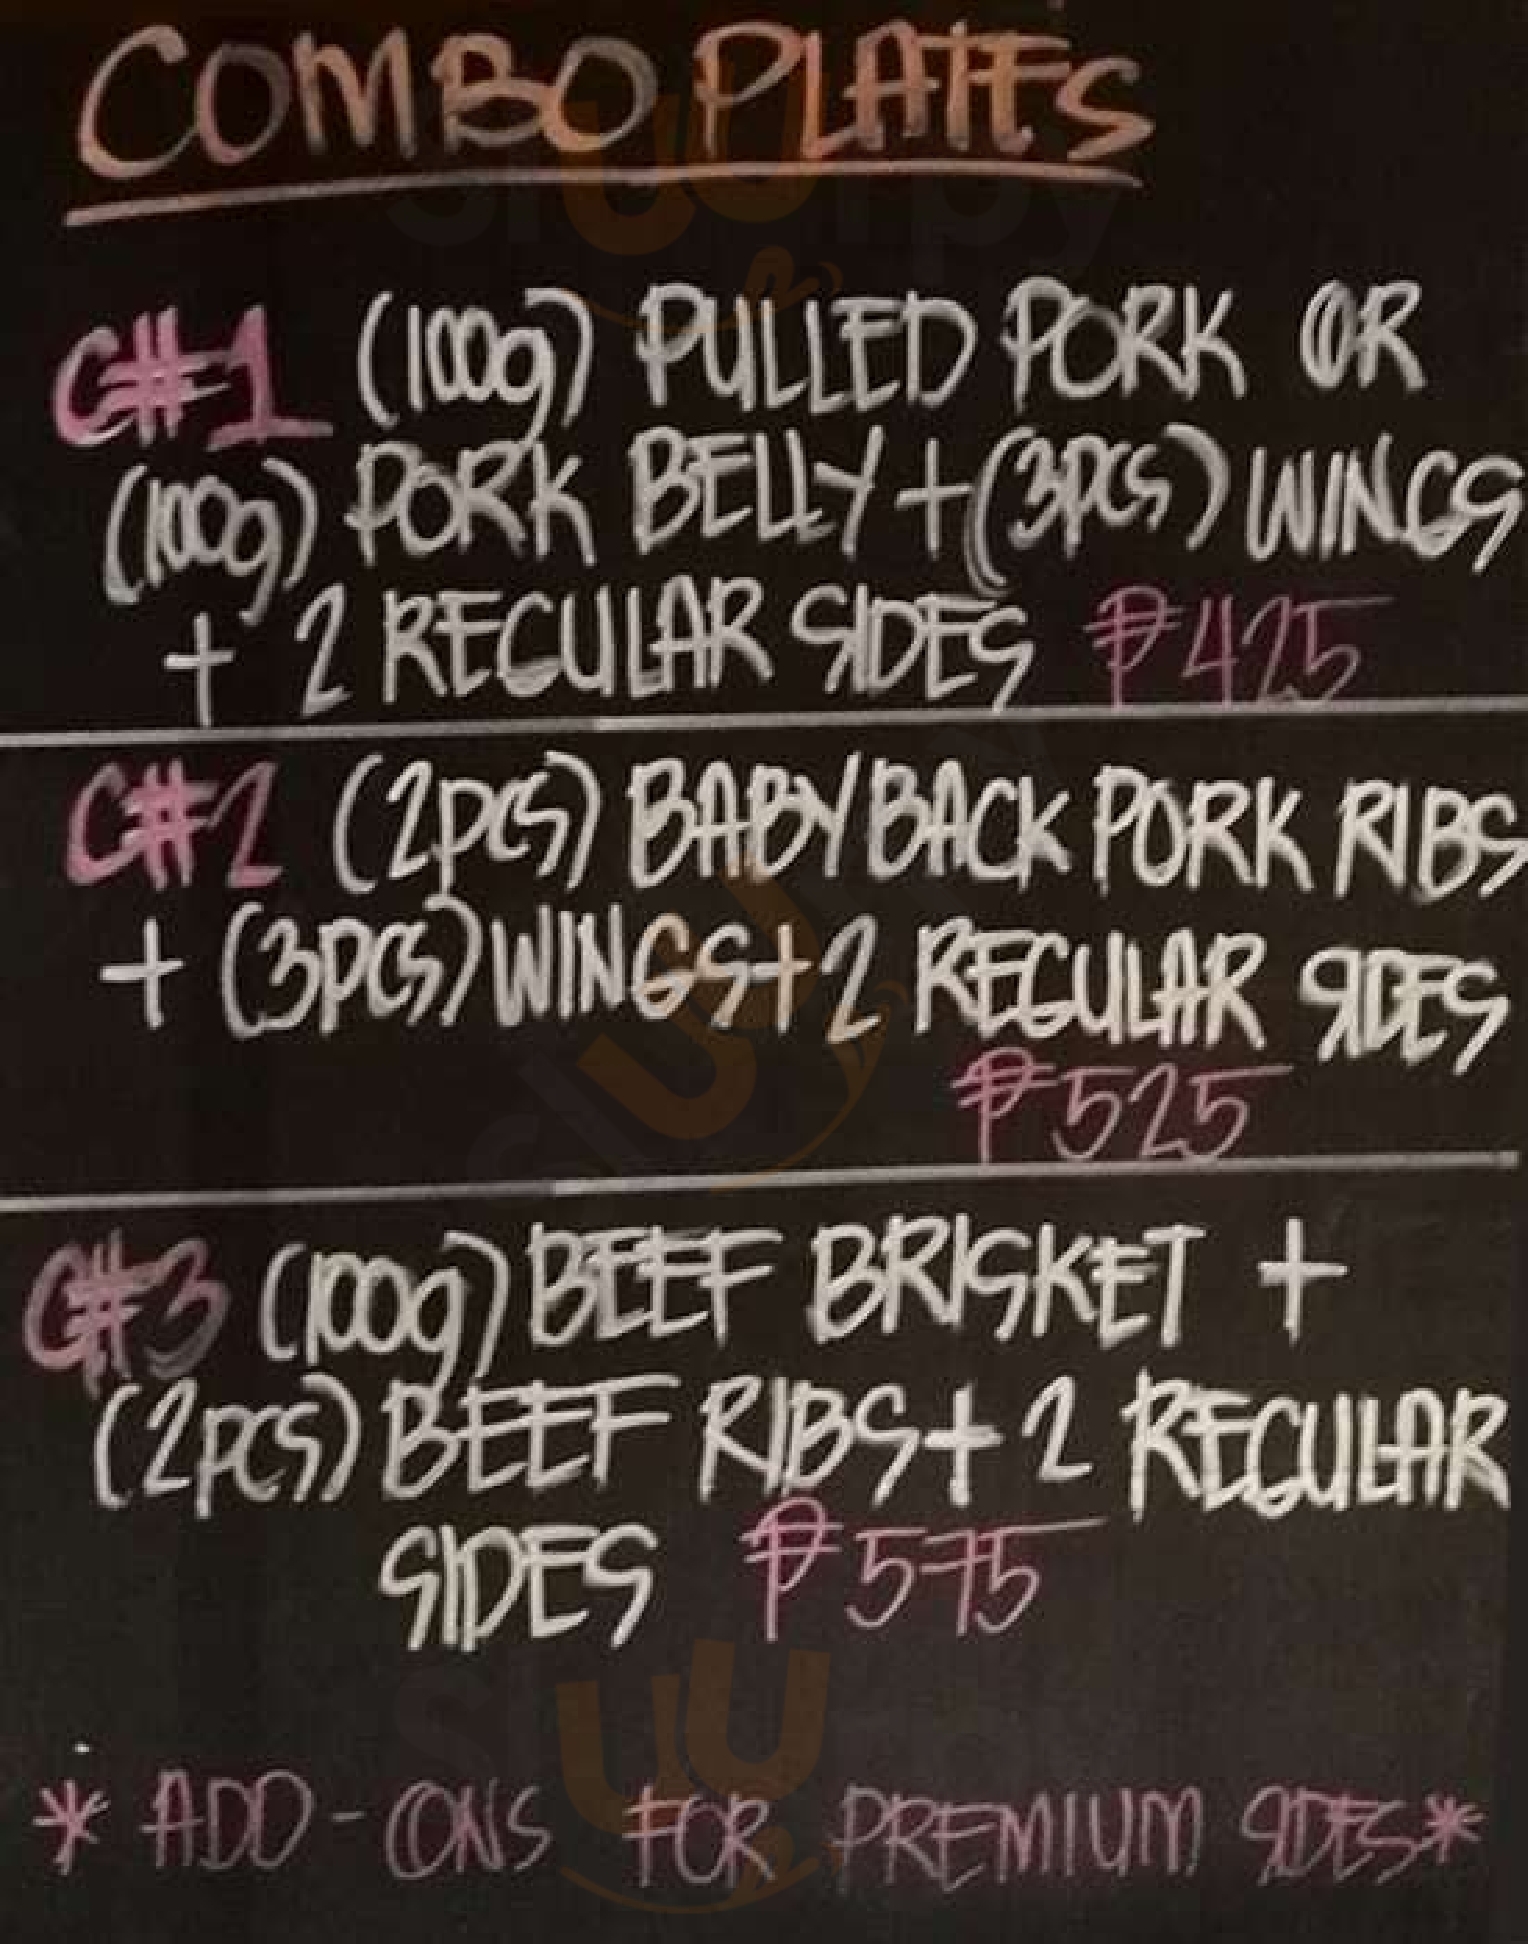 COMBO PLATES
C#1 (100g) PULLED PORK OR
(100g) PORK BELLY + (3pcs) WINGS
+ 2 REGULAR SIDES ₱425
C#2 (2pcs) BABYBACK PORK RIBS
+ (3pcs) WINGS + 2 REGULAR SIDES
₱525
C#3 (100g) BEEF BRISKET +
(2pcs) BEEF RIBS + 2 REGULAR
SIDES ₱575
* ADD-ONS FOR PREMIUM SIDES *
slurpy
slurpy
slurpy